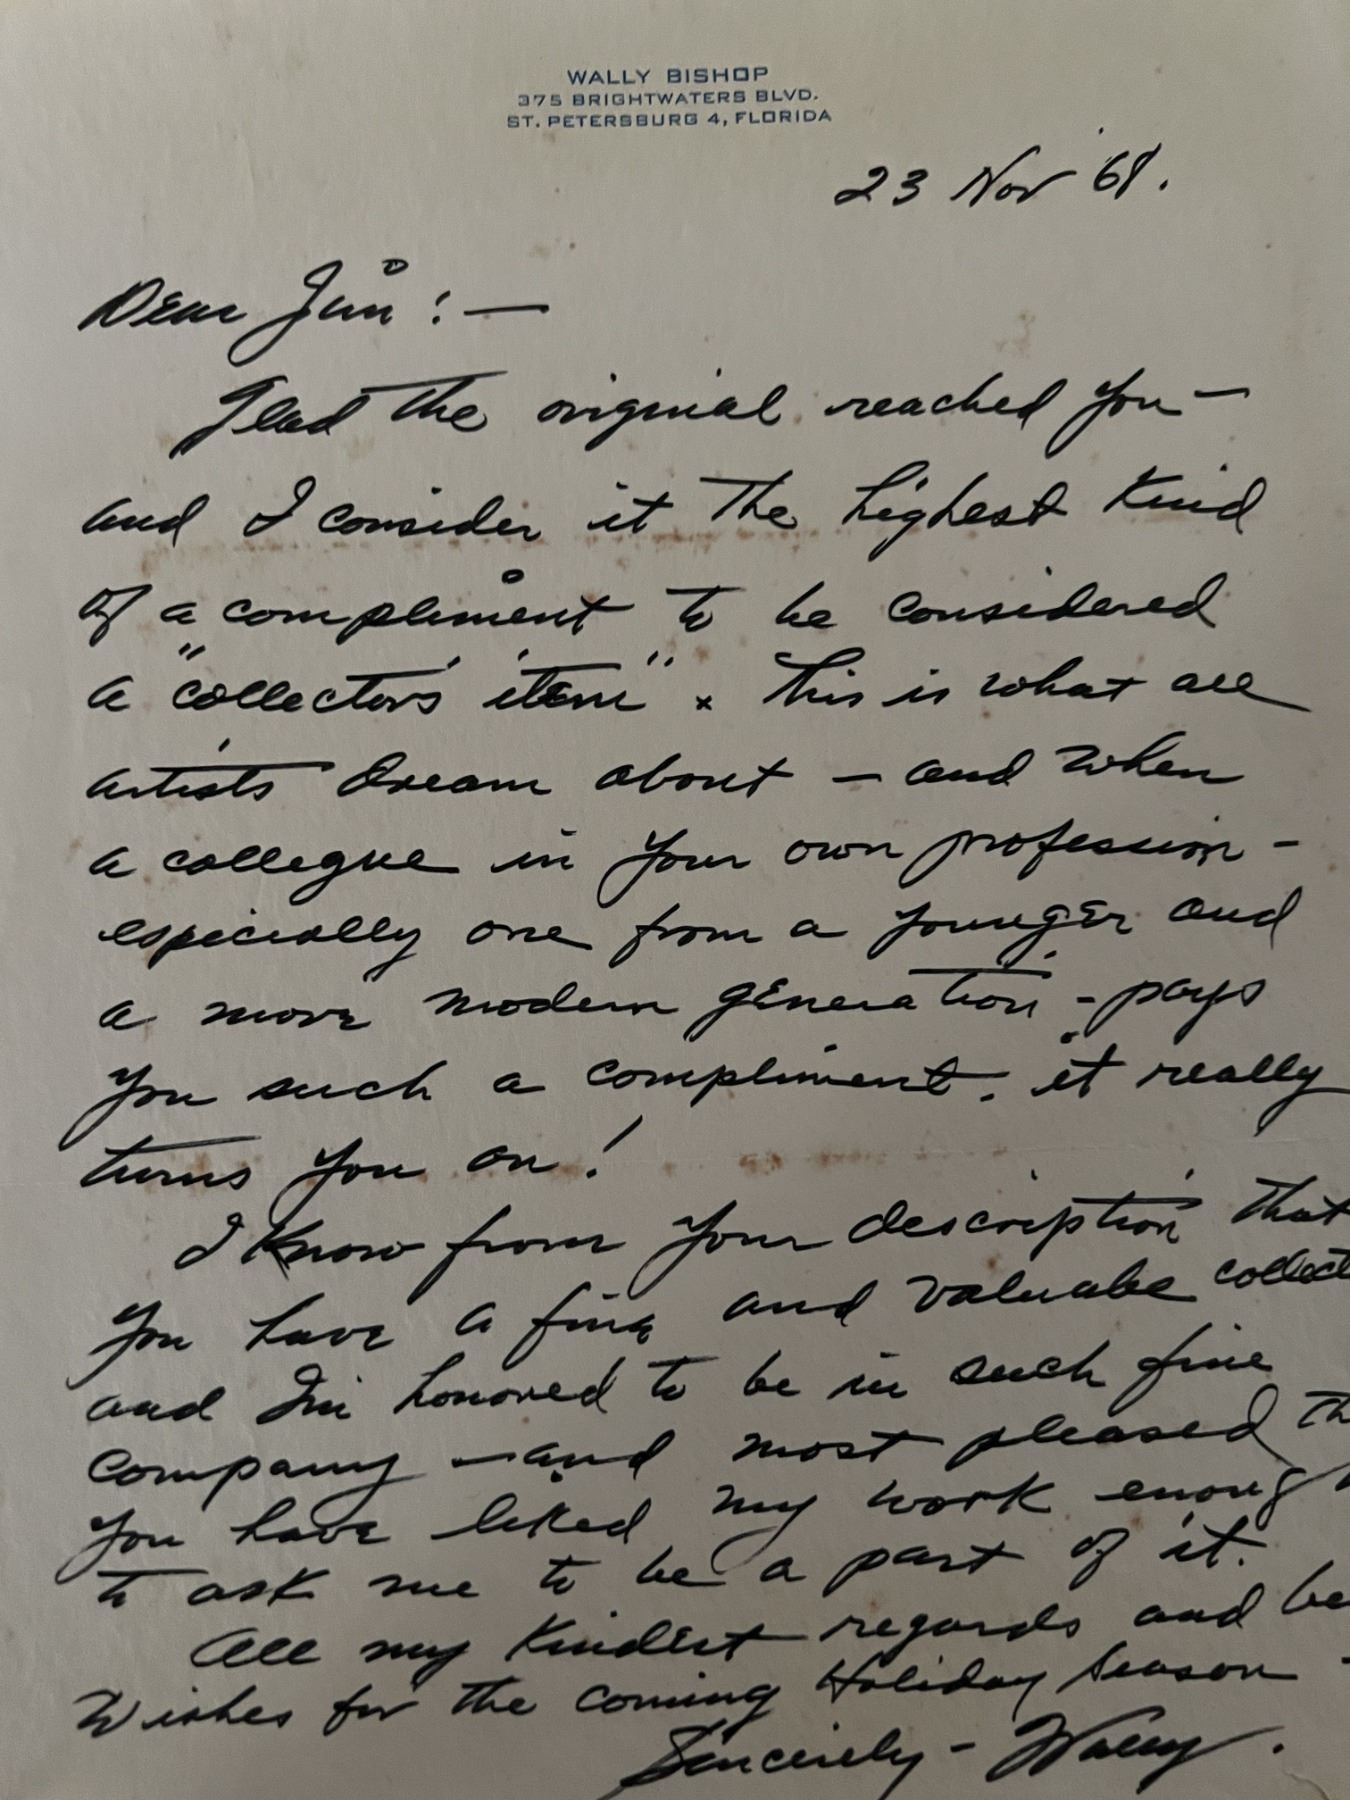 WALLY BISHOP
375 BRIGHTWATERS BLVD.
ST. PETERSBURG 4, FLORIDA
23 Nov '68.
Dear Jim : —
Glad the original reached you —
and I consider it the highest kind
of a compliment to be considered
a "collector's item" x This is what all
artists dream about — and when
a collegue in your own profession -
especially one from a younger and
a more modern generation - pays
you such a compliment, it really
turns you on!
I know from your description that
you have a fine and valuabe collect
and I'm honored to be in such fine
company — and most pleased th
you have liked my work enoug
to ask me to be a part of it.
All my kindest regards and be
Wishes for the coming Holiday Season -
Sincerely - Wally.